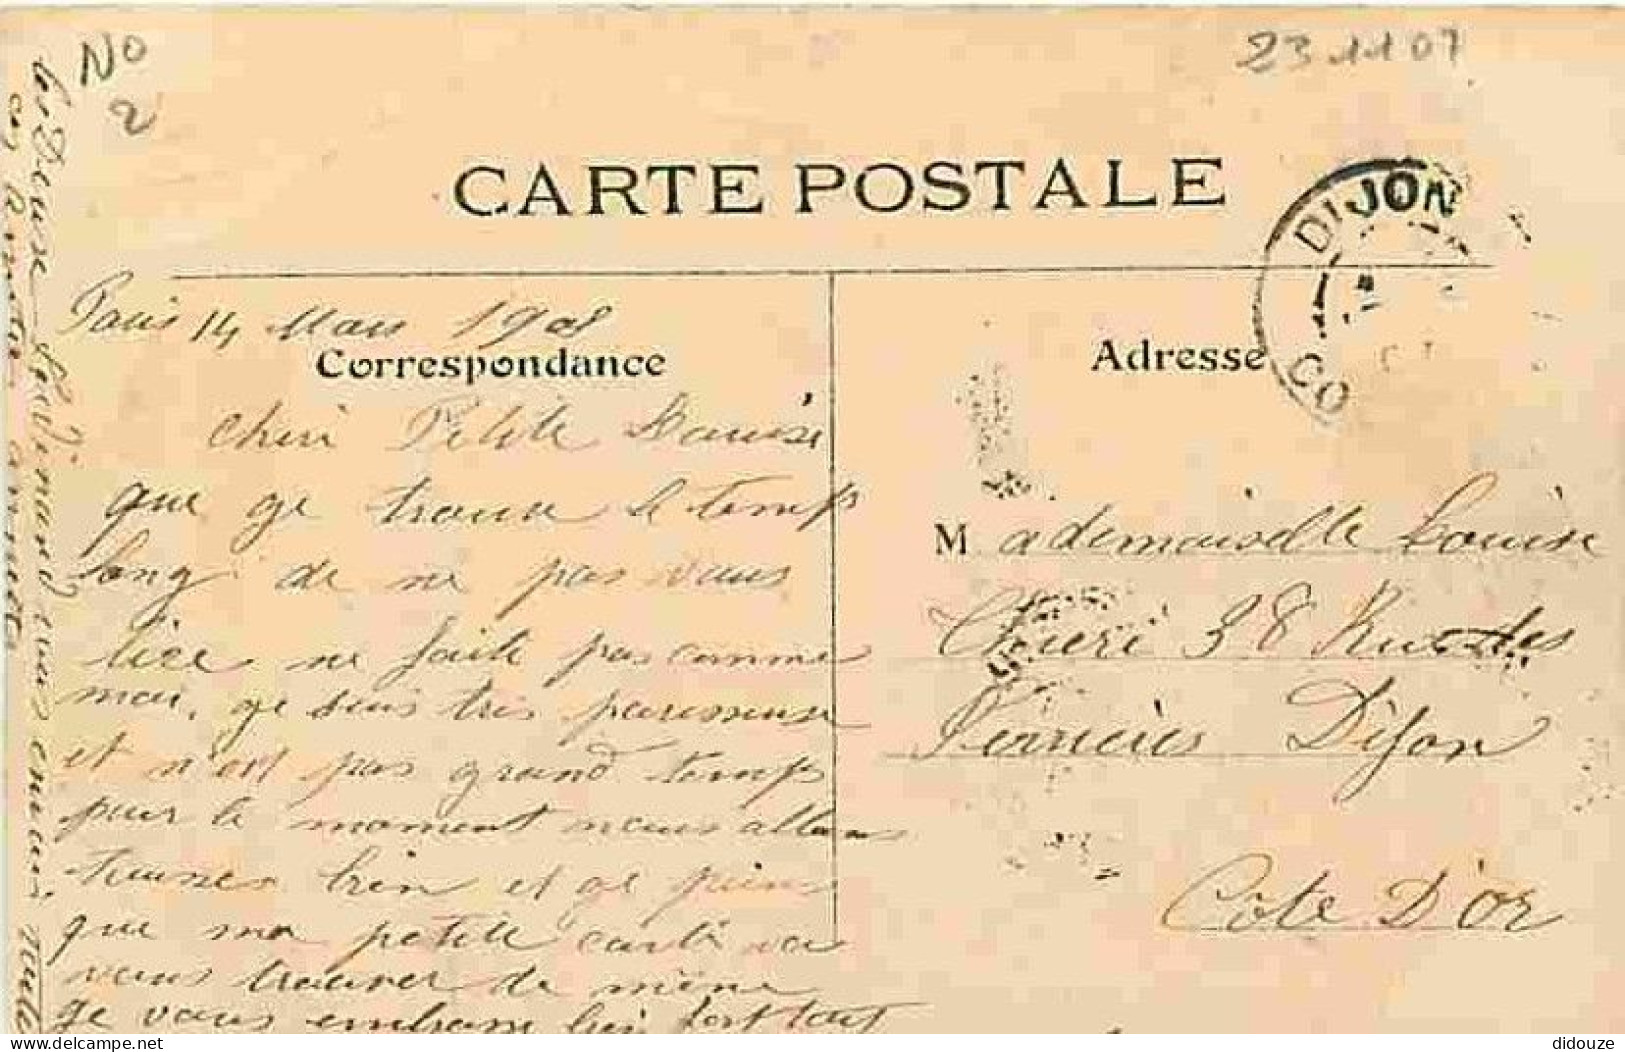 No
2
23 11 07
CARTE POSTALE
DIJON
CO
Paris 14 Mars 1908
Correspondance
Adresse
Cheri Petite Louise
que ge trouve le temps
long de ne pas vous
lire ne faite pas comme
moi, ge suis tres paresseuse
et n'est pas grand temps
pour le moment nous allons
bien et ge pense
que ma petite carte va
vous trouver de même
ge vous embrasse bien fort tout
Mademoiselle Louise
38 Rue des
Perrières Dijon
Côte D'Or
didouze
delcampe.net